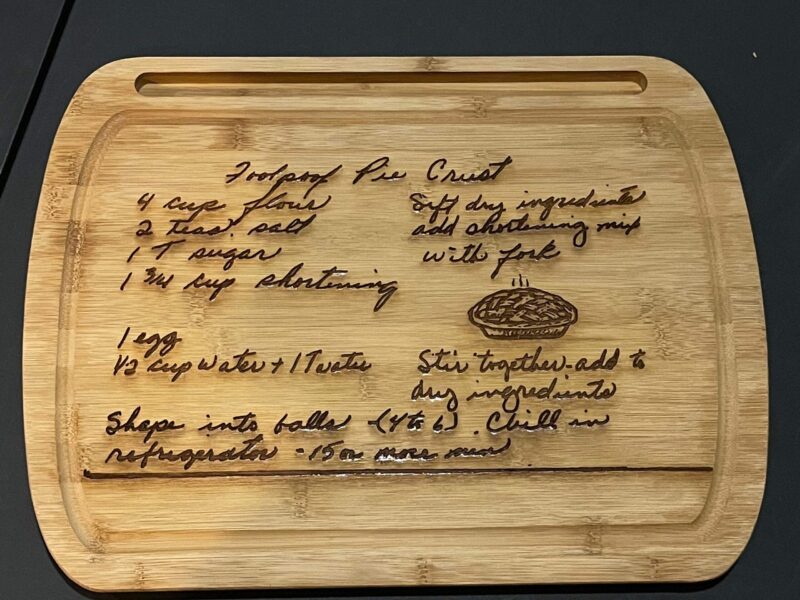 Foolproof Pie Crust
4 cup flour
2 teas. salt
1 T sugar
1 3/4 cup shortening
Sift dry ingredients
add shortening mix
with fork
1 egg
1/2 cup water + 1 T water
Stir together - add to
dry ingredients
Shape into balls (4 to 6). Chill in
refrigerator - 15 or more min